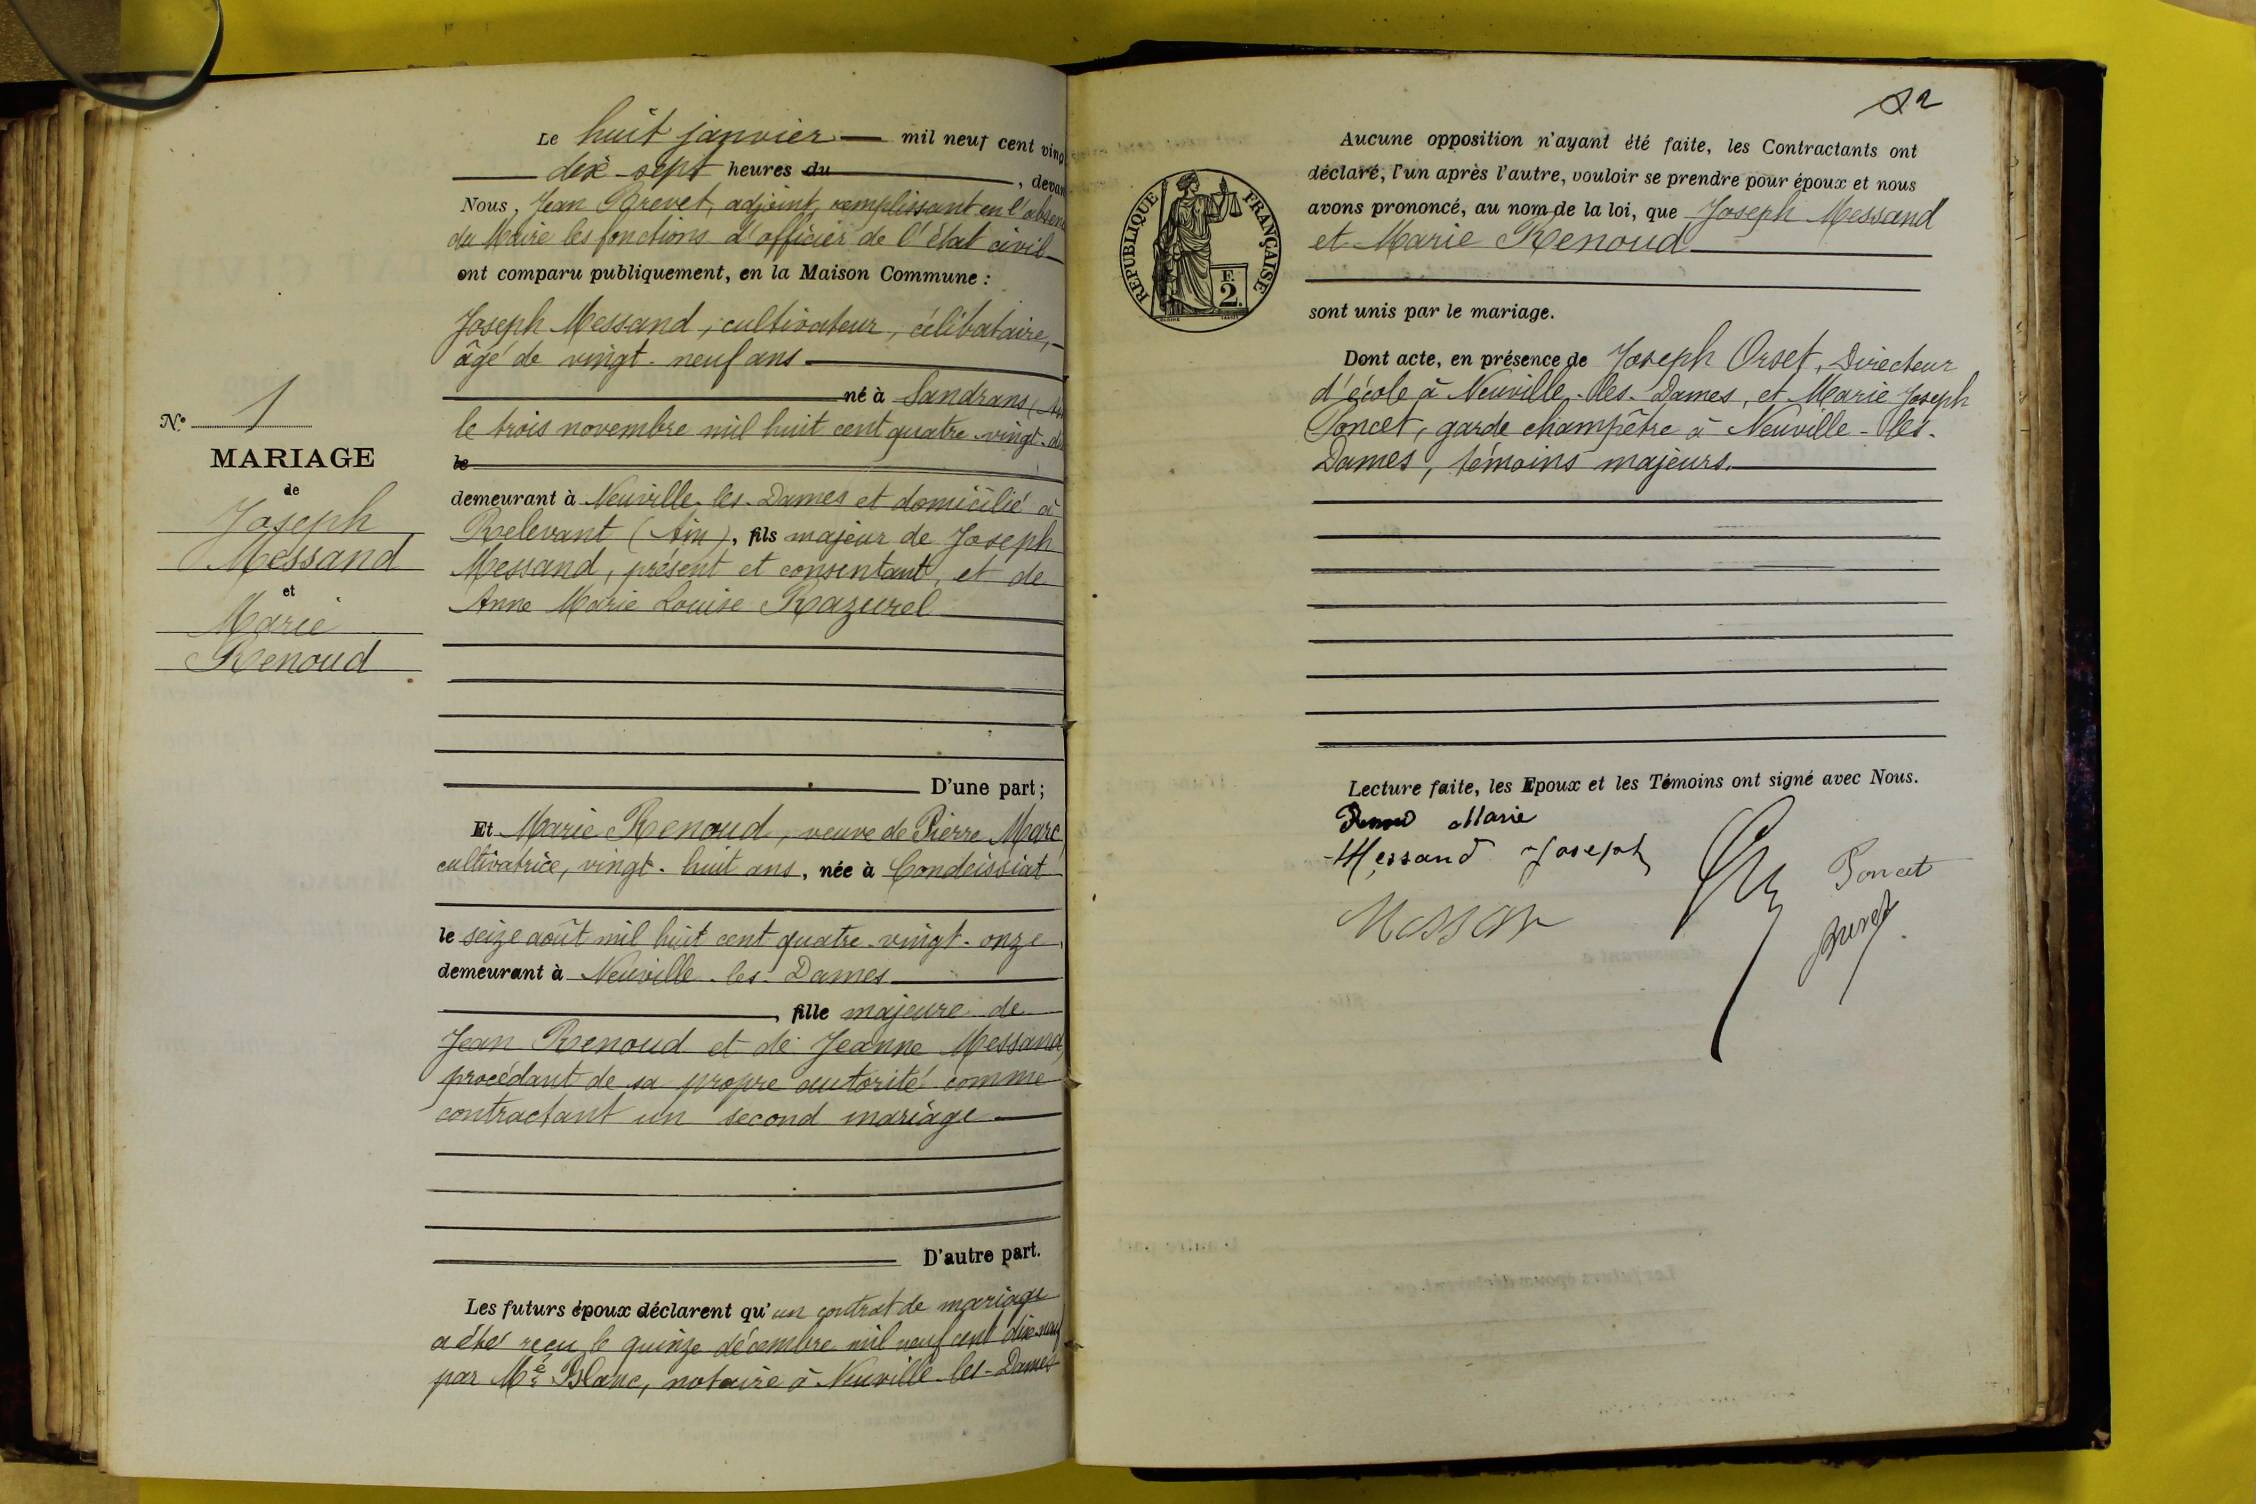 Le huit janvier mil neuf cent ving
dix-sept heures du , devan
Nous, Jean Brevet, adjoint, remplissant en l'absen
du Maire les fonctions d'officier de l'état civil
ont comparu publiquement, en la Maison Commune :
Joseph Messand, cultivateur, célibataire,
âgé de vingt-neuf ans
né à Sandrans (Ain
le trois novembre mil huit cent quatre-vingt-di
le
N° 1
MARIAGE
de
Joseph
Messand
et
Marie
Renoud
demeurant à Neuville-les-Dames et domicilié à
Relevant (Ain), fils majeur de Joseph
Messand, présent et consentant, et de
Anne Marie Louise Razurel
D'une part;
Et Marie Renoud, veuve de Pierre Marc,
cultivatrice, vingt-huit ans, née à Condeissiat
le seize août mil huit cent quatre-vingt-onze,
demeurant à Neuville-les-Dames
, fille majeure de
Jean Renoud et de Jeanne Messand,
procédant de sa propre autorité comme
contractant un second mariage
D'autre part.
Les futurs époux déclarent qu'un contrat de mariage
a été reçu le quinze décembre mil neuf cent dix-neuf
par Me Blanc, notaire à Neuville-les-Dames
82
Aucune opposition n'ayant été faite, les Contractants ont
déclaré, l'un après l'autre, vouloir se prendre pour époux et nous
avons prononcé, au nom de la loi, que Joseph Messand
et Marie Renoud
sont unis par le mariage.
RÉPUBLIQUE FRANÇAISE
F.
2.
Dont acte, en présence de Joseph Orset, Directeur
d'école à Neuville-les-Dames, et Marie Joseph
Poncet, garde champêtre à Neuville-les-
Dames, témoins majeurs.
Lecture faite, les Epoux et les Témoins ont signé avec Nous.
Renoud Marie
Messand Joseph
Poncet
Brevet